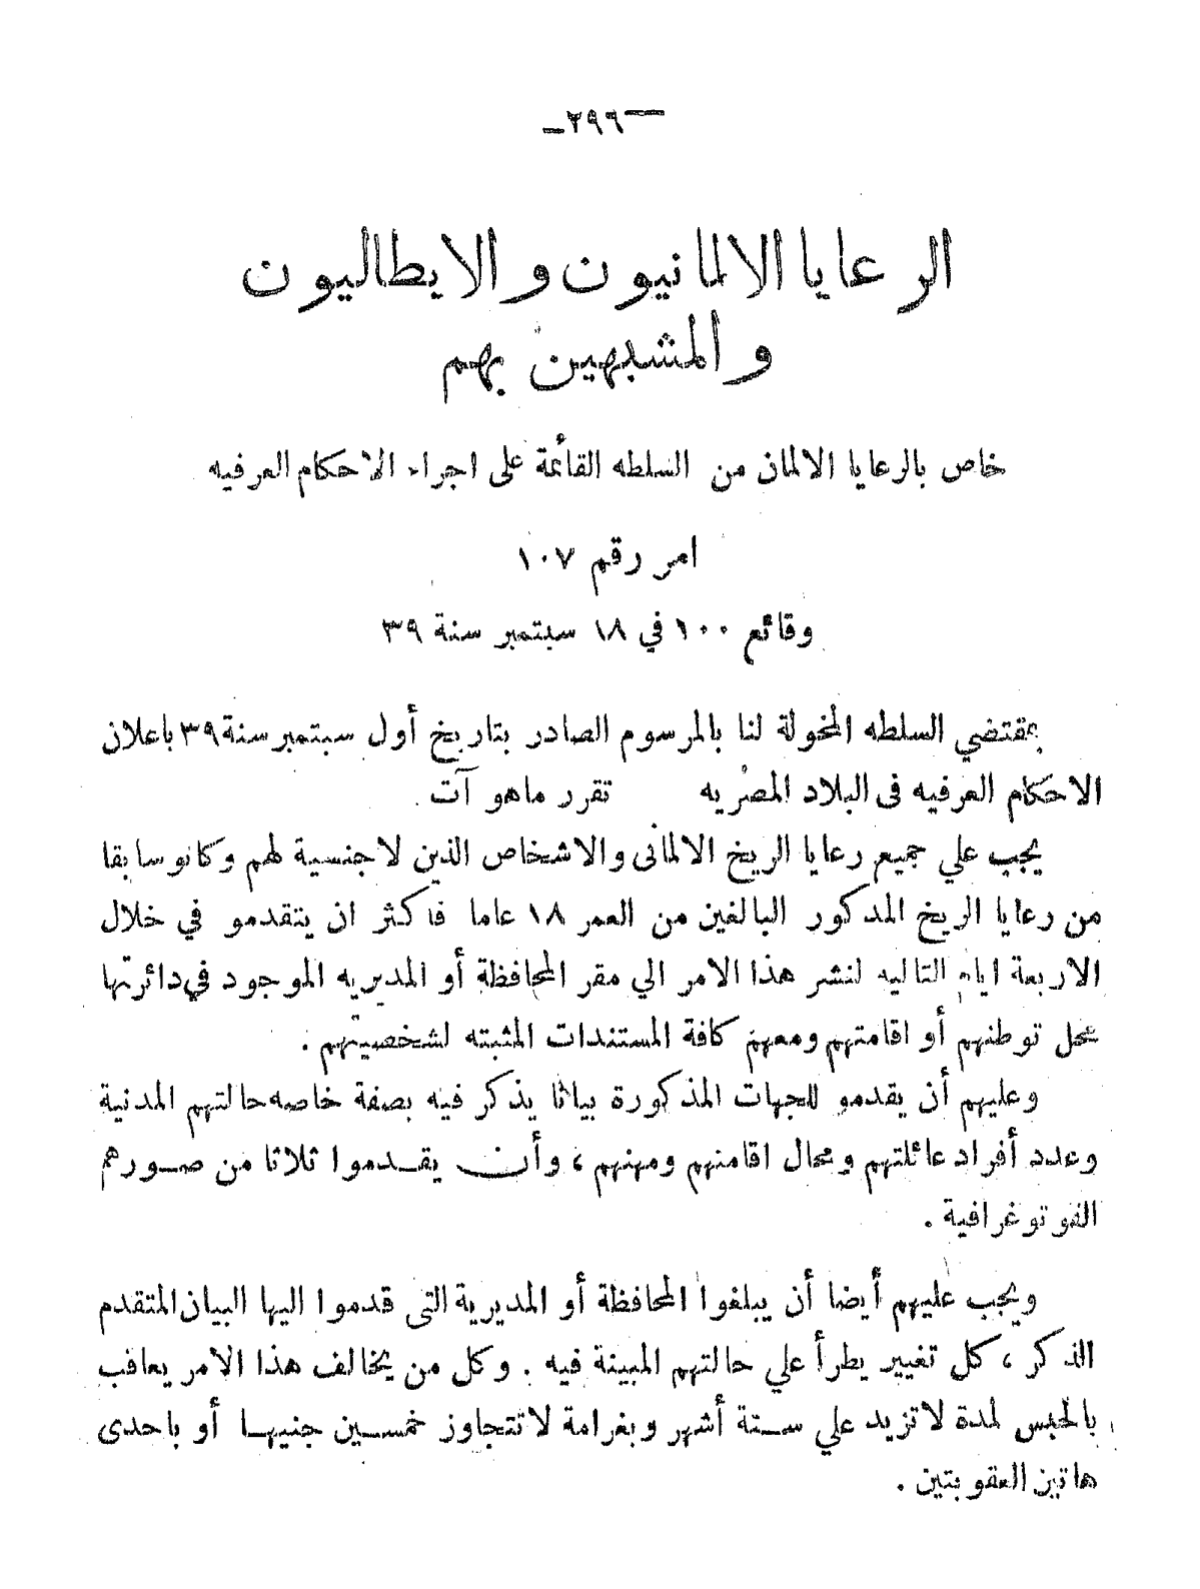 —٢٩٦—
الرعايا الالمانيون والايطاليون
والمشبهين بهم
خاص بالرعايا الالمان من السلطه القائمة على اجراء الاحكام العرفيه
امر رقم ١٠٧
وقائع ١٠٠ في ١٨ سبتمبر سنة ٣٩
بمقتضي السلطه المخولة لنا بالمرسوم الصادر بتاريخ أول سبتمبر سنة ٣٩ باعلان
الاحكام العرفيه فى البلاد المصريه تقرر ماهو آت .
يجب علي جميع رعايا الريخ الالمانى والاشخاص الذين لاجنسية لهم وكانو سابقا
من رعايا الريخ المدكور البالغين من العمر ١٨ عاما فاكثر ان يتقدمو في خلال
الاربعة ايام التاليه لنشر هذا الامر الي مقر المحافظة أو المديريه الموجود في دائرتها
محل توطنهم أو اقامتهم ومعهم كافة المستندات المثبته لشخصيتهم .
وعليهم أن يقدمو للجهات المذكورة بيانا يذكر فيه بصفة خاصه حالتهم المدنية
وعدد أفراد عائلتهم ومحال اقامتهم ومهنهم ، وأن يقدموا ثلاثا من صورهم
الفوتوغرافية .
ويجب عليهم أيضا أن يبلغوا المحافظة أو المديرية التى قدموا اليها البيان المتقدم
الذكر ، كل تغيير يطرأ علي حالتهم المبينة فيه . وكل من يخالف هذا الامر يعاقب
بالحبس لمدة لاتزيد علي ستة أشهر وبغرامة لاتتجاوز خمسين جنيها أو باحدى
هاتين العقوبتين .